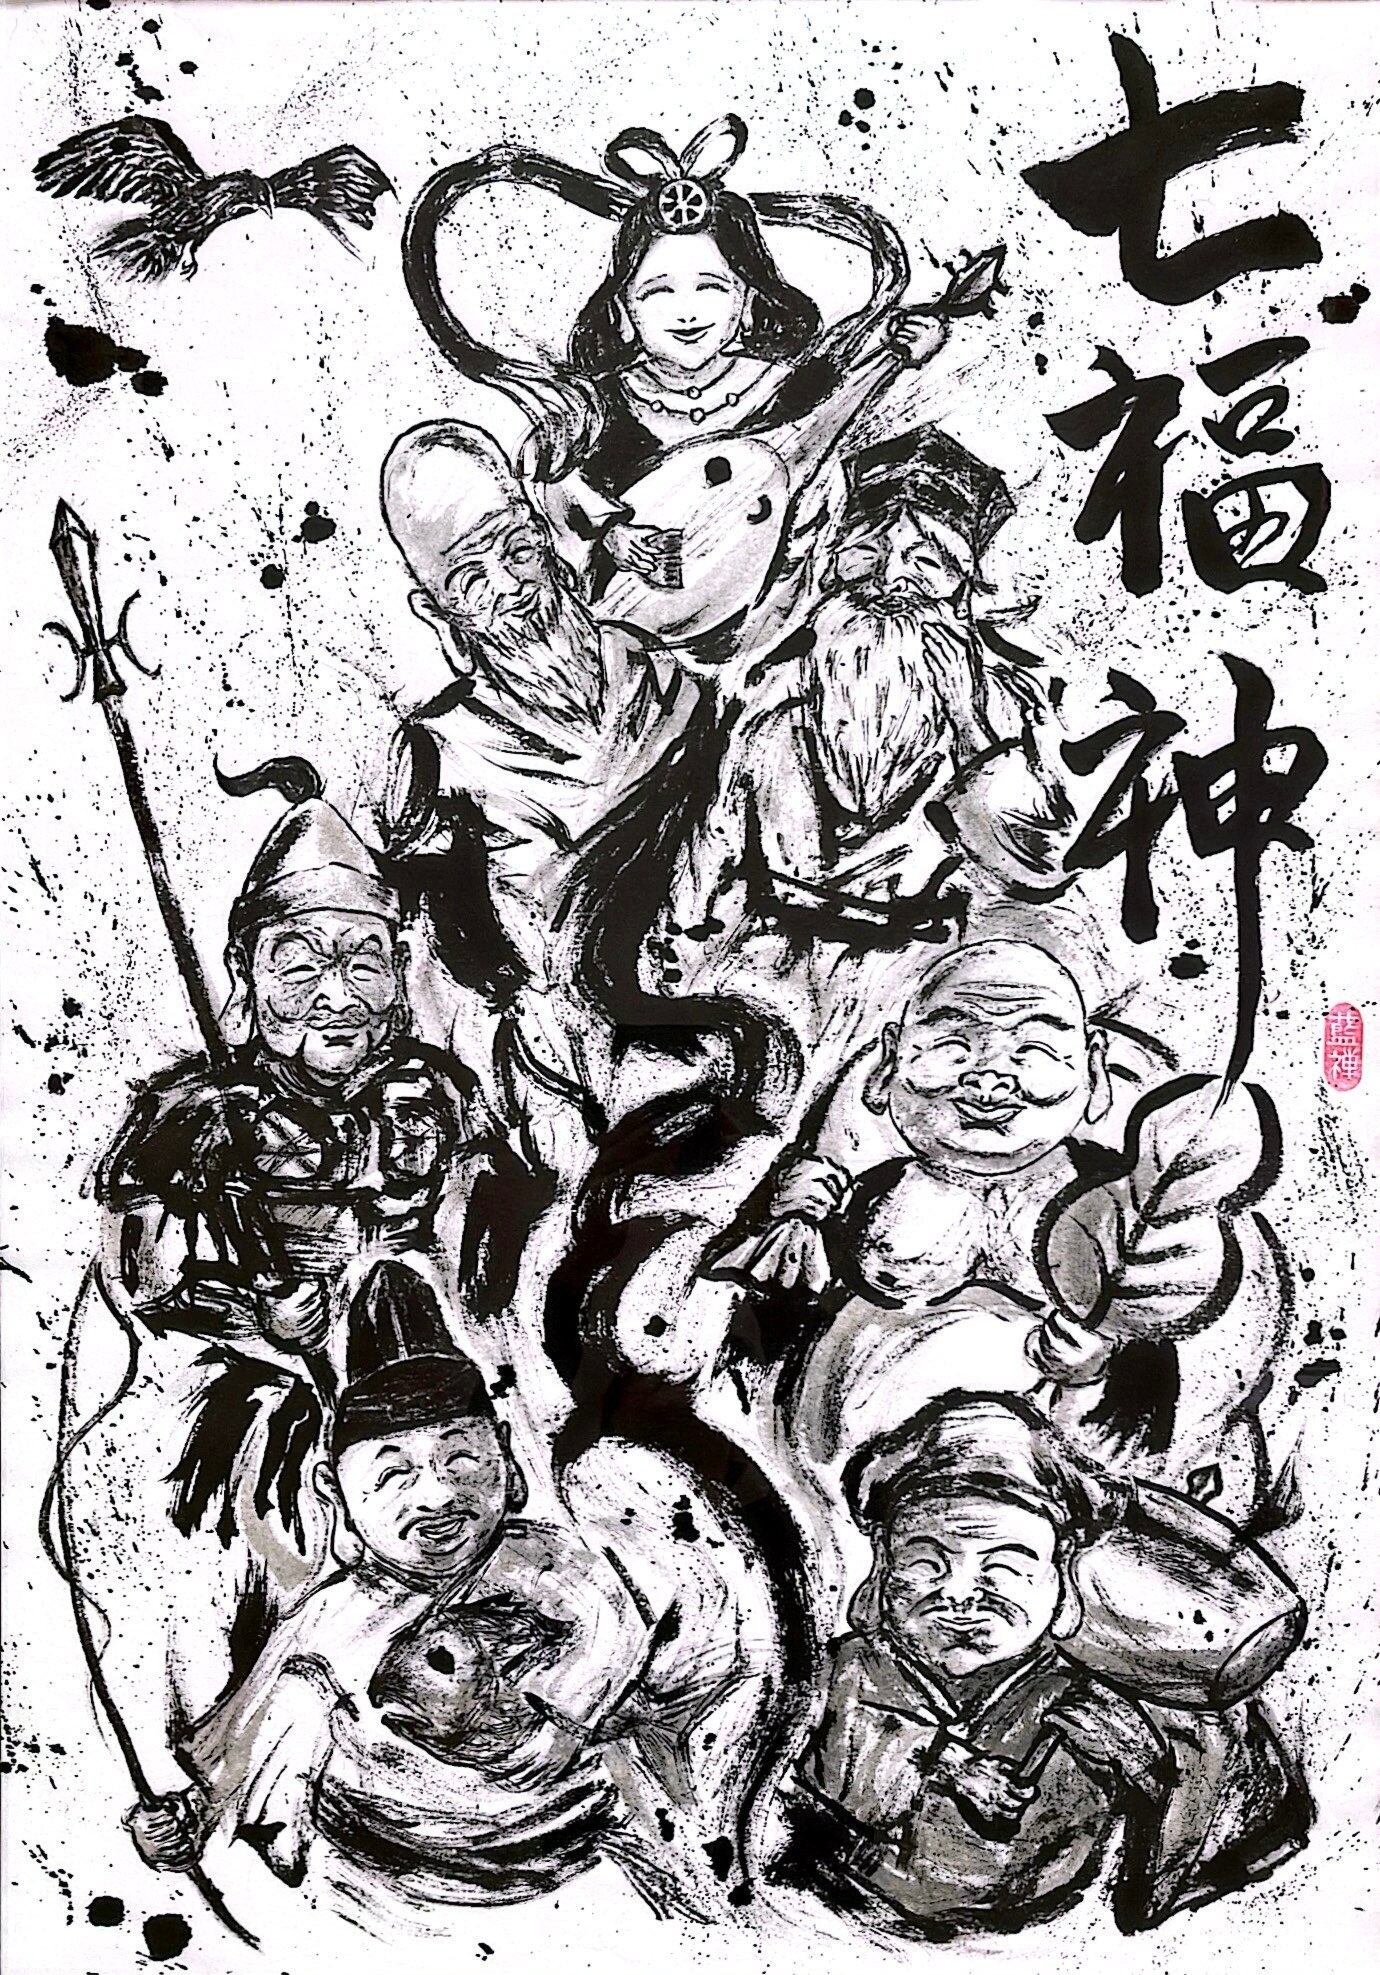 七福神
藍禅